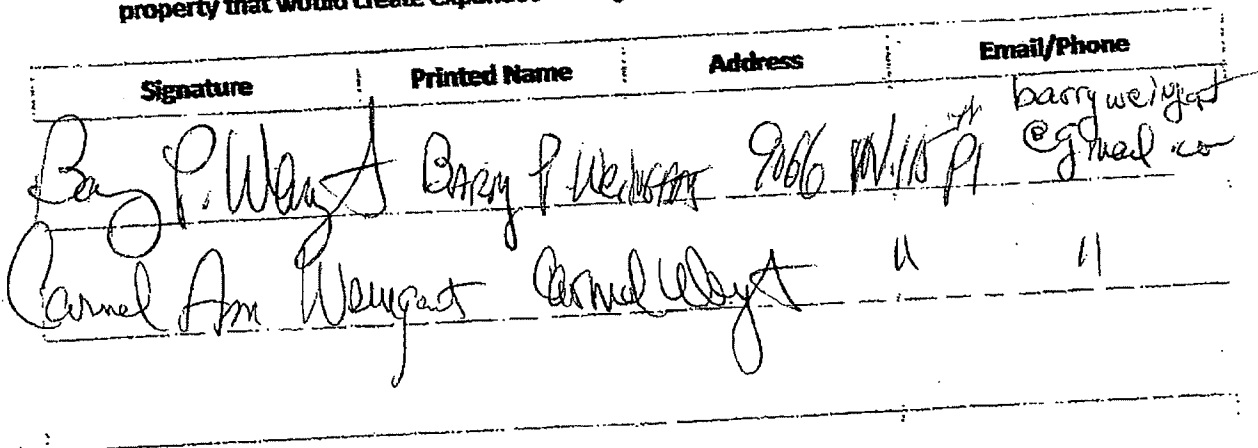 property that would create expanded
Signature Printed Name Address Email/Phone
Barry P. Weingart BARRY P WEINGART 9066 W. 115th Pl barryweingart
@gmail.com
Carmel Ann Weingart Carmel Weingart " "